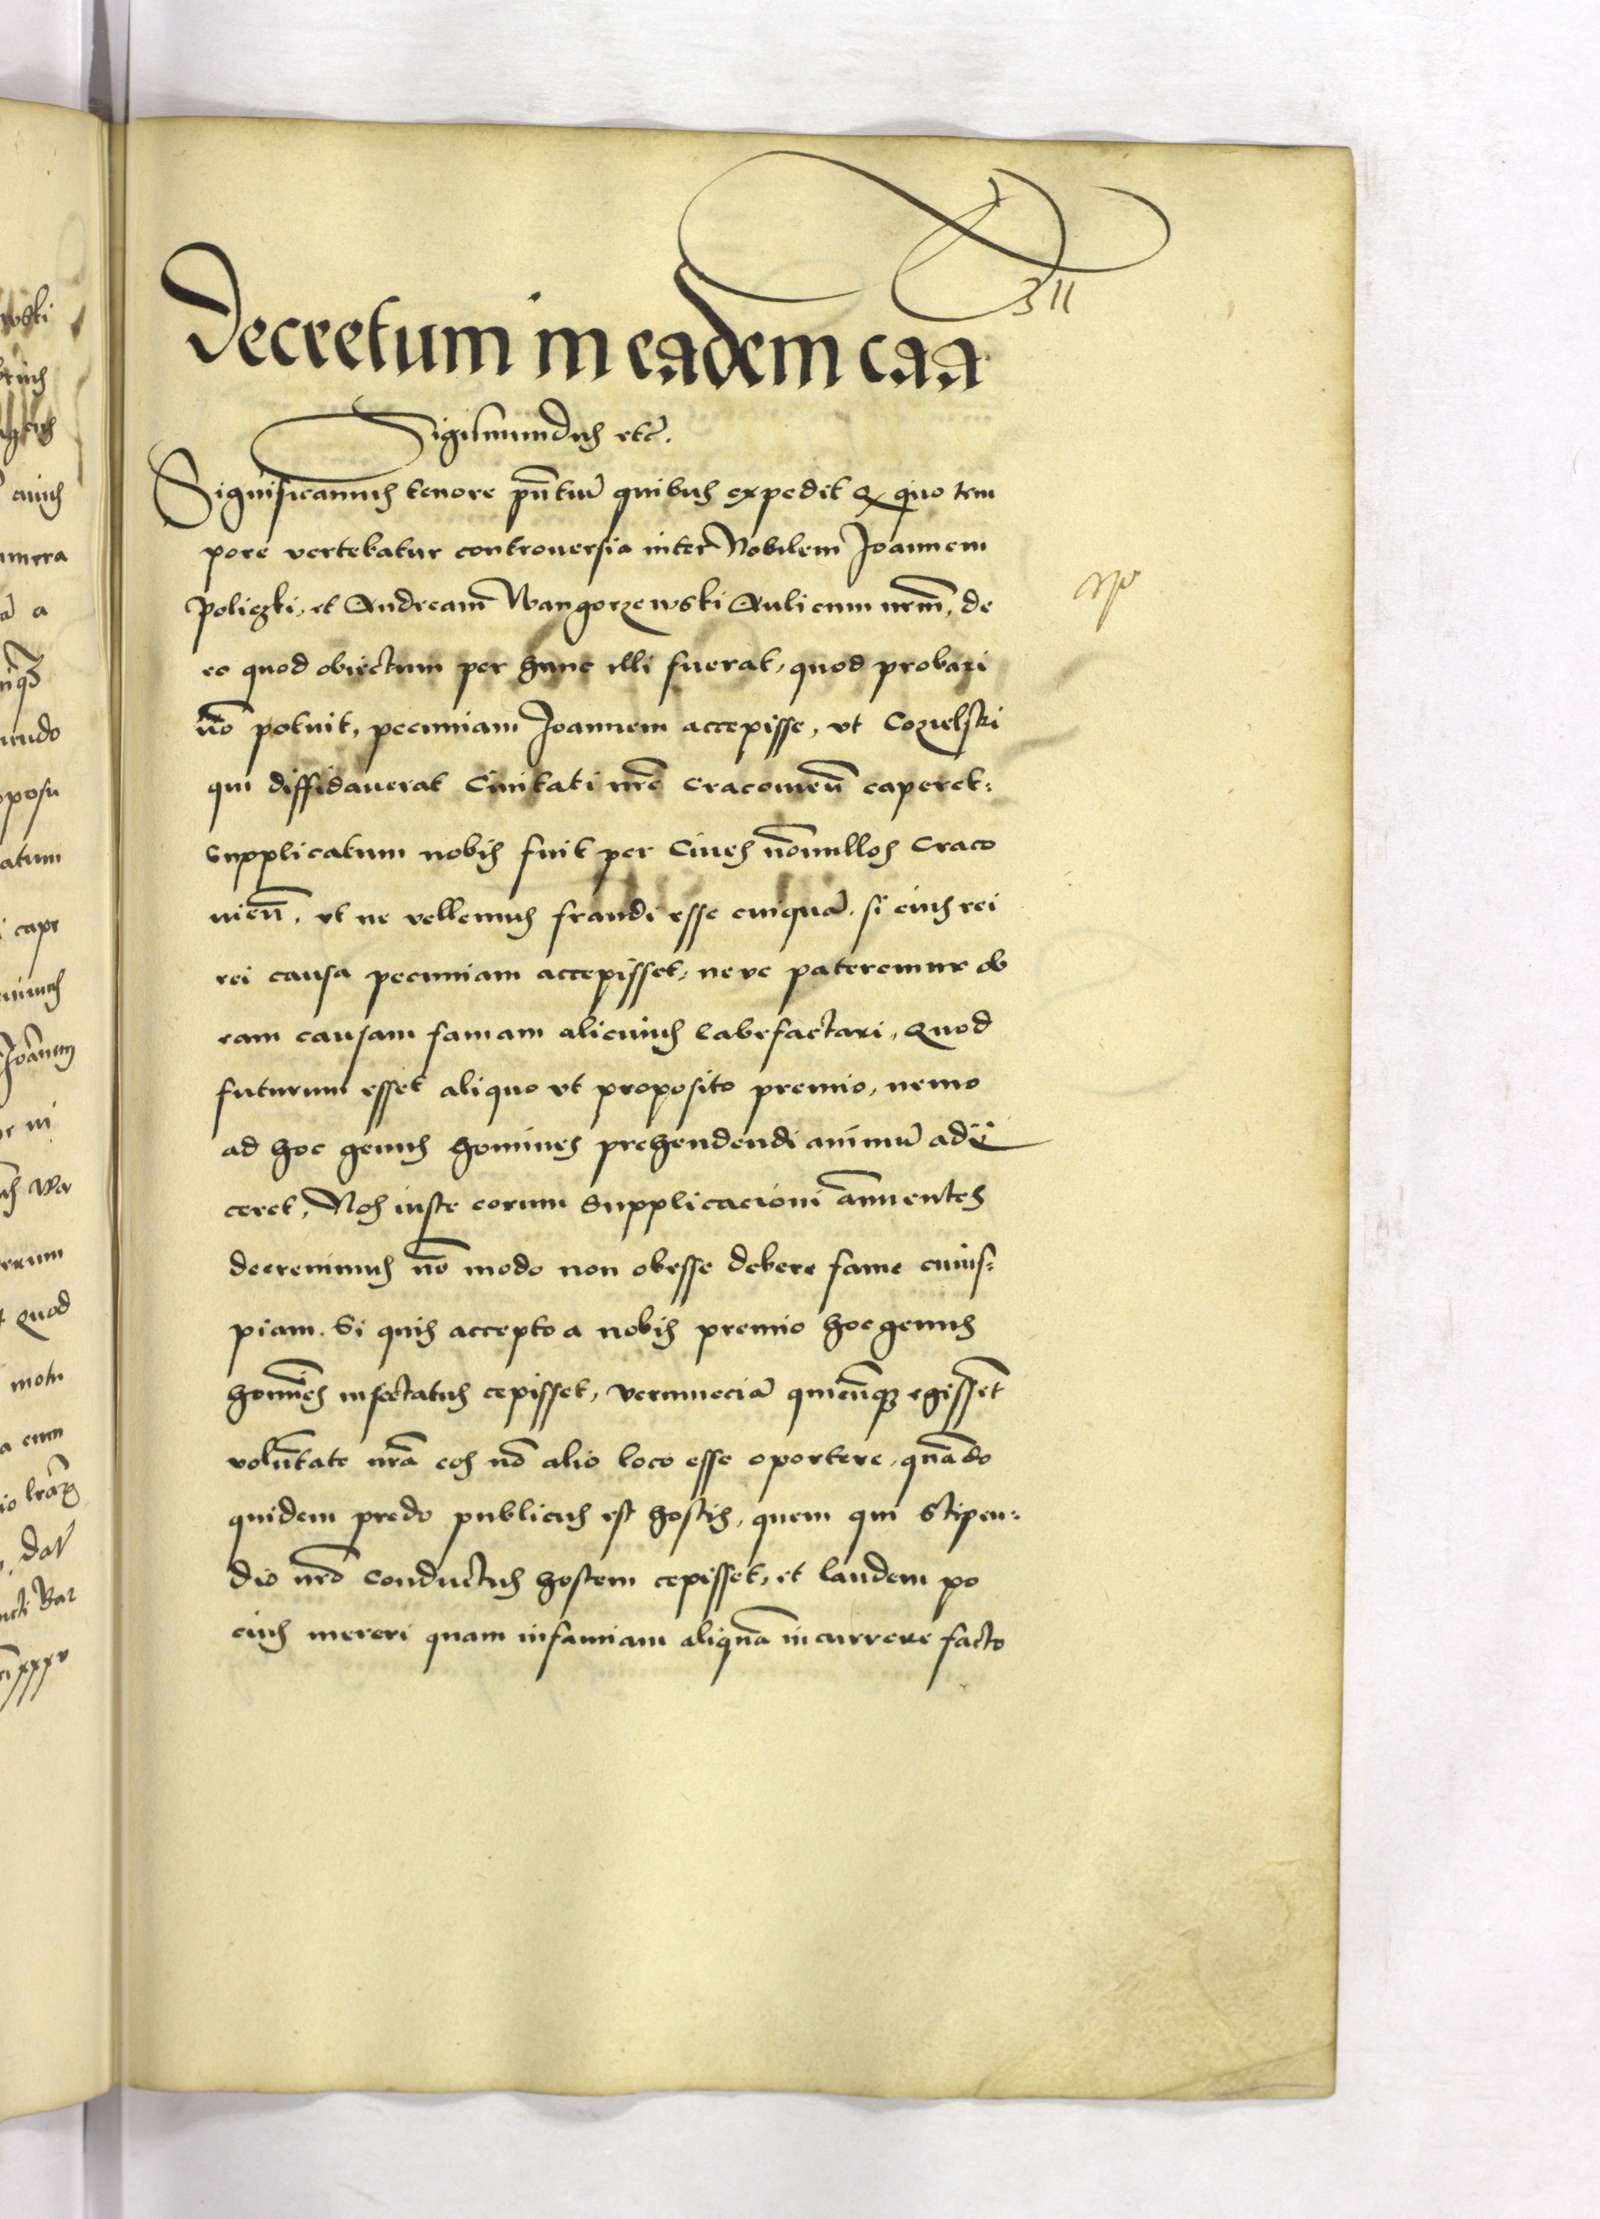 311
Decretum in eadem caã
Sigismundus etc̃.
Significamus tenore pñtiũ quibus expedit Q̃ quo tem
pore vertebatur controuersia inter Nobilem Joannem
Policzki, et Andream Wangorzewski Aulicum nrm̃, de
eo quod obiectum per hunc illi fuerat, quod probari
nõ potuit, pecuniam Joannem accepisse, vt Cozielski
qui diffidauerat Ciuitati nrẽ Cracouieñ caperet:
Supplicatum nobis fuit per Ciues nõnullos Craco
uieñ, vt ne vellemus fraudi esse cuiquã, si eius rei
rei causa pecuniam accepisset, neve pateremur ob
eam causam famam alicuius labefactari, Quod
futurum esset aliquo vt proposito premio, nemo
ad hoc genus homines prehendendi animũ adii
ceret, Nos iuste eorum Supplicacioni ãnuentes
decreuimus nõ modo non obesse debere fame cuius:
piam. Si quis accepto a nobis premio hoc genus
hoĩes insectatus cepisset, verumeciã quicũq3 egissẽt
volũtate nrã eos nõ alio loco esse oportere, quãdo
quidem predo publicus est hostis, quem qui Stipen:
dio nrõ conductus hostem cepisset, et laudem po
cius mereri quam infamiam aliquã incurrere facto
wski
a
mundo
proposu
atum
i cape
Joãnem
quod
motu
a cum
dat
xxxv